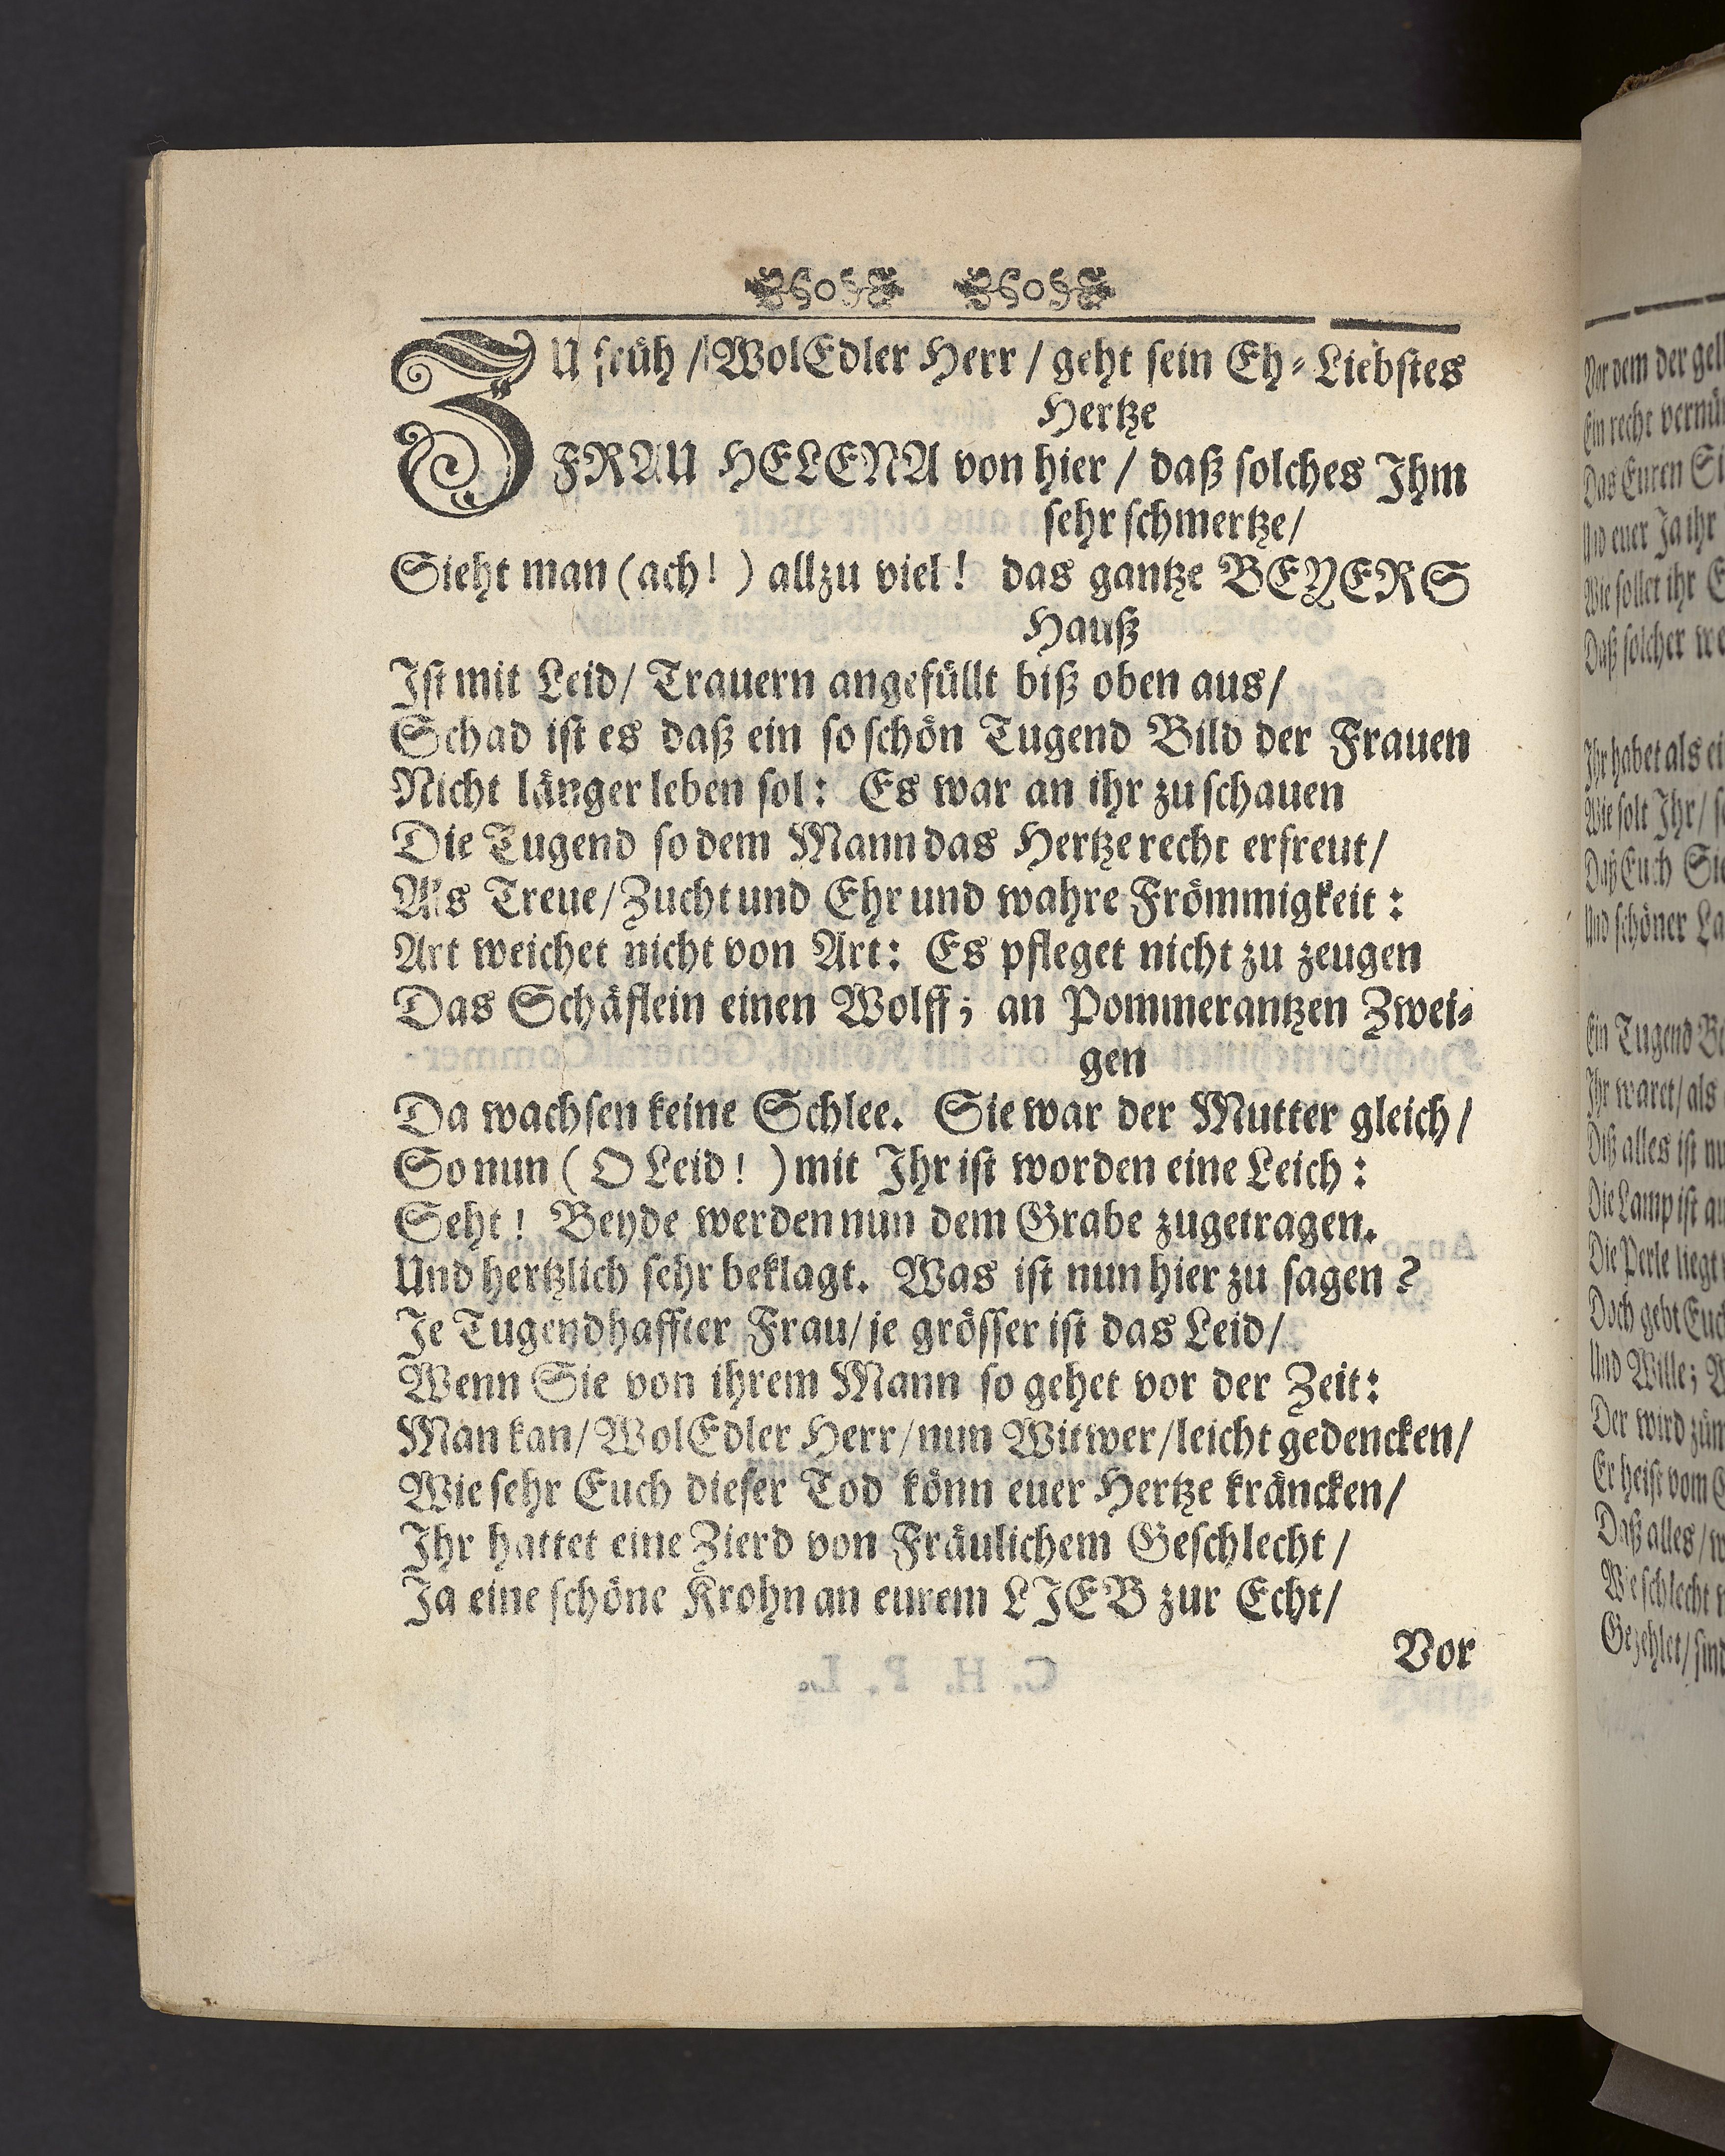 ZU früh / WolEdler Herr / geht sein Eh-Liebstes
Hertze
FRAU HELENA von hier / daß solches Ihm
sehr schmertze/
Sieht man (ach! ) allzu viel! das gantze BEYERS
Hauß
Ist mit Leid/ Trauern angefüllt biß oben aus/
Schad ist es daß ein so schön Tugend Bild der Frauen
Nicht länger leben sol: Es war an ihr zu schauen
Die Tugend so dem Mann das Hertze recht erfreut/
Als Treue/ Zucht und Ehr und wahre Frömmigkeit:
Art weichet nicht von Art: Es pfleget nicht zu zeugen
Das Schäflein einen Wolff; an Pommerantzen Zwei-
gen
Da wachsen keine Schlee. Sie war der Mutter gleich/
So nun ( O Leid! ) mit Ihr ist worden eine Leich:
Seht! Beyde werden nun dem Grabe zugetragen.
Und hertzlich sehr beklagt. Was ist nun hier zu sagen?
Je Tugendhaffter Frau/ je grösser ist das Leid/
Wenn Sie von ihrem Mann so gehet vor der Zeit:
Man kan/ WolEdler Herr/ nun Witwer/ leicht gedencken/
Wie sehr Euch dieser Tod könn euer Hertze kräncken/
Ihr hattet eine Zierd von Fräulichem Geschlecht/
Ja eine schöne Krohn an eurem LIEB zur Echt/
Vor
Vor dem der
Ein recht
Das Euren
Und euer Ja ihr
Wie sollet ihr
Daß solcher
Ihr habet als
Wie solt Ihr/
Daß Euch
Und schöner
Ein Tugend
Ihr waret/ als
Diß alles ist
Die Lamp ist
Die Perle liegt
Doch gebt
Und Wille;
Der wird
Er heist vom
Daß alles/
Wie schlecht
Gezehlet/